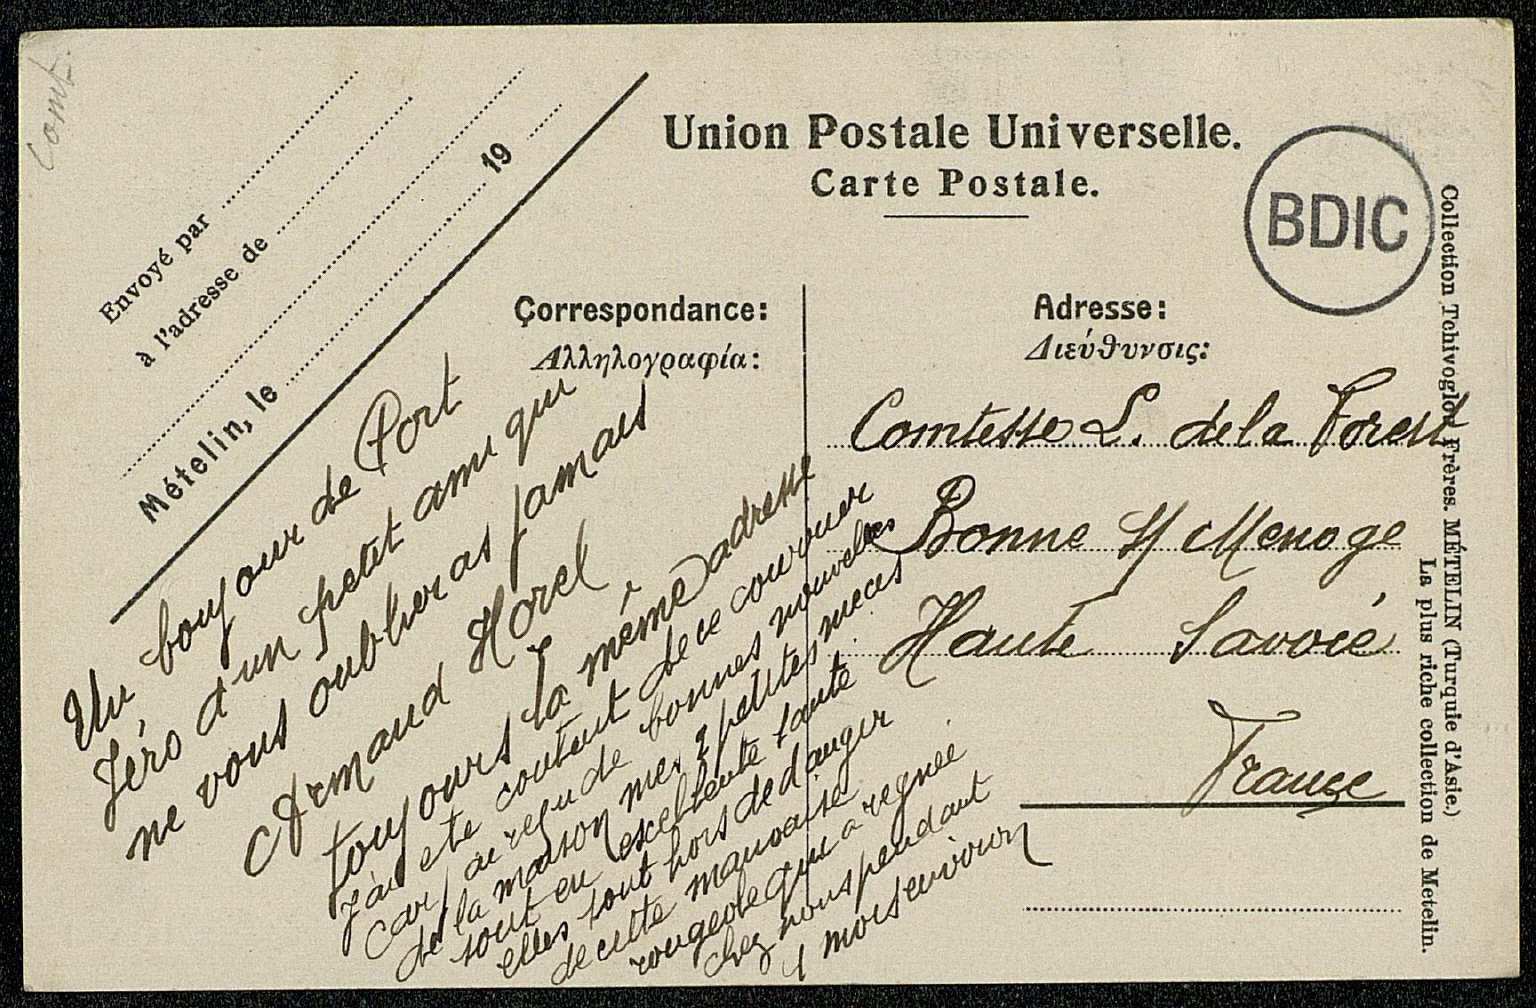 Comt.
Envoyé par
à l'adresse de
Métélin, le 19
Union Postale Universelle.
Carte Postale.
BDIC
Correspondance:
Αλληλογραφία:
Un bonjour de Port
Jéro d'un petit ami qui
ne vous oublieras jamais
Armand Horel
toujours la même adresse
J'ai ete contant de ce courrier
car j'ai reçu de bonnes nouvelles
de la maison mes 2 petites nieces
sont en excellente santé
elles sont hors de danger
de cette mauvaise
rougeole qui a regnée
chez nous pendant
1 mois environ
Adresse:
Διεύθυνσις:
Comtesse L. de la Forest
Bonne s/ Menoge
Haute Savoie
France
Collection Tchivoglou Frères. MÉTELIN (Turquie d'Asie.)
La plus riche collection de Metelin.